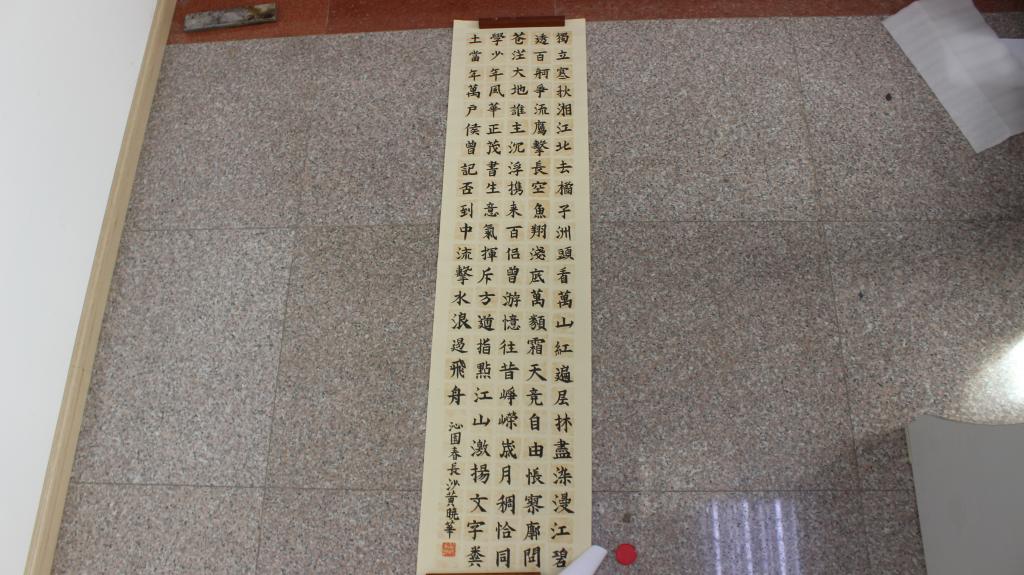 獨立寒秋湘江北去橘子洲頭看萬山紅遍层林盡染漫江碧
透百舸爭流鷹擊長空魚翔淺底萬類霜天竞自由悵寥廓問
苍茫大地誰主沉浮携来百侣曾游憶往昔崢嶸歲月稠恰同
學少年風華正茂書生意氣揮斥方遒指點江山激揚文字糞
土當年萬户侯曾記否到中流擊水浪遏飛舟
沁園春長沙黄曉華